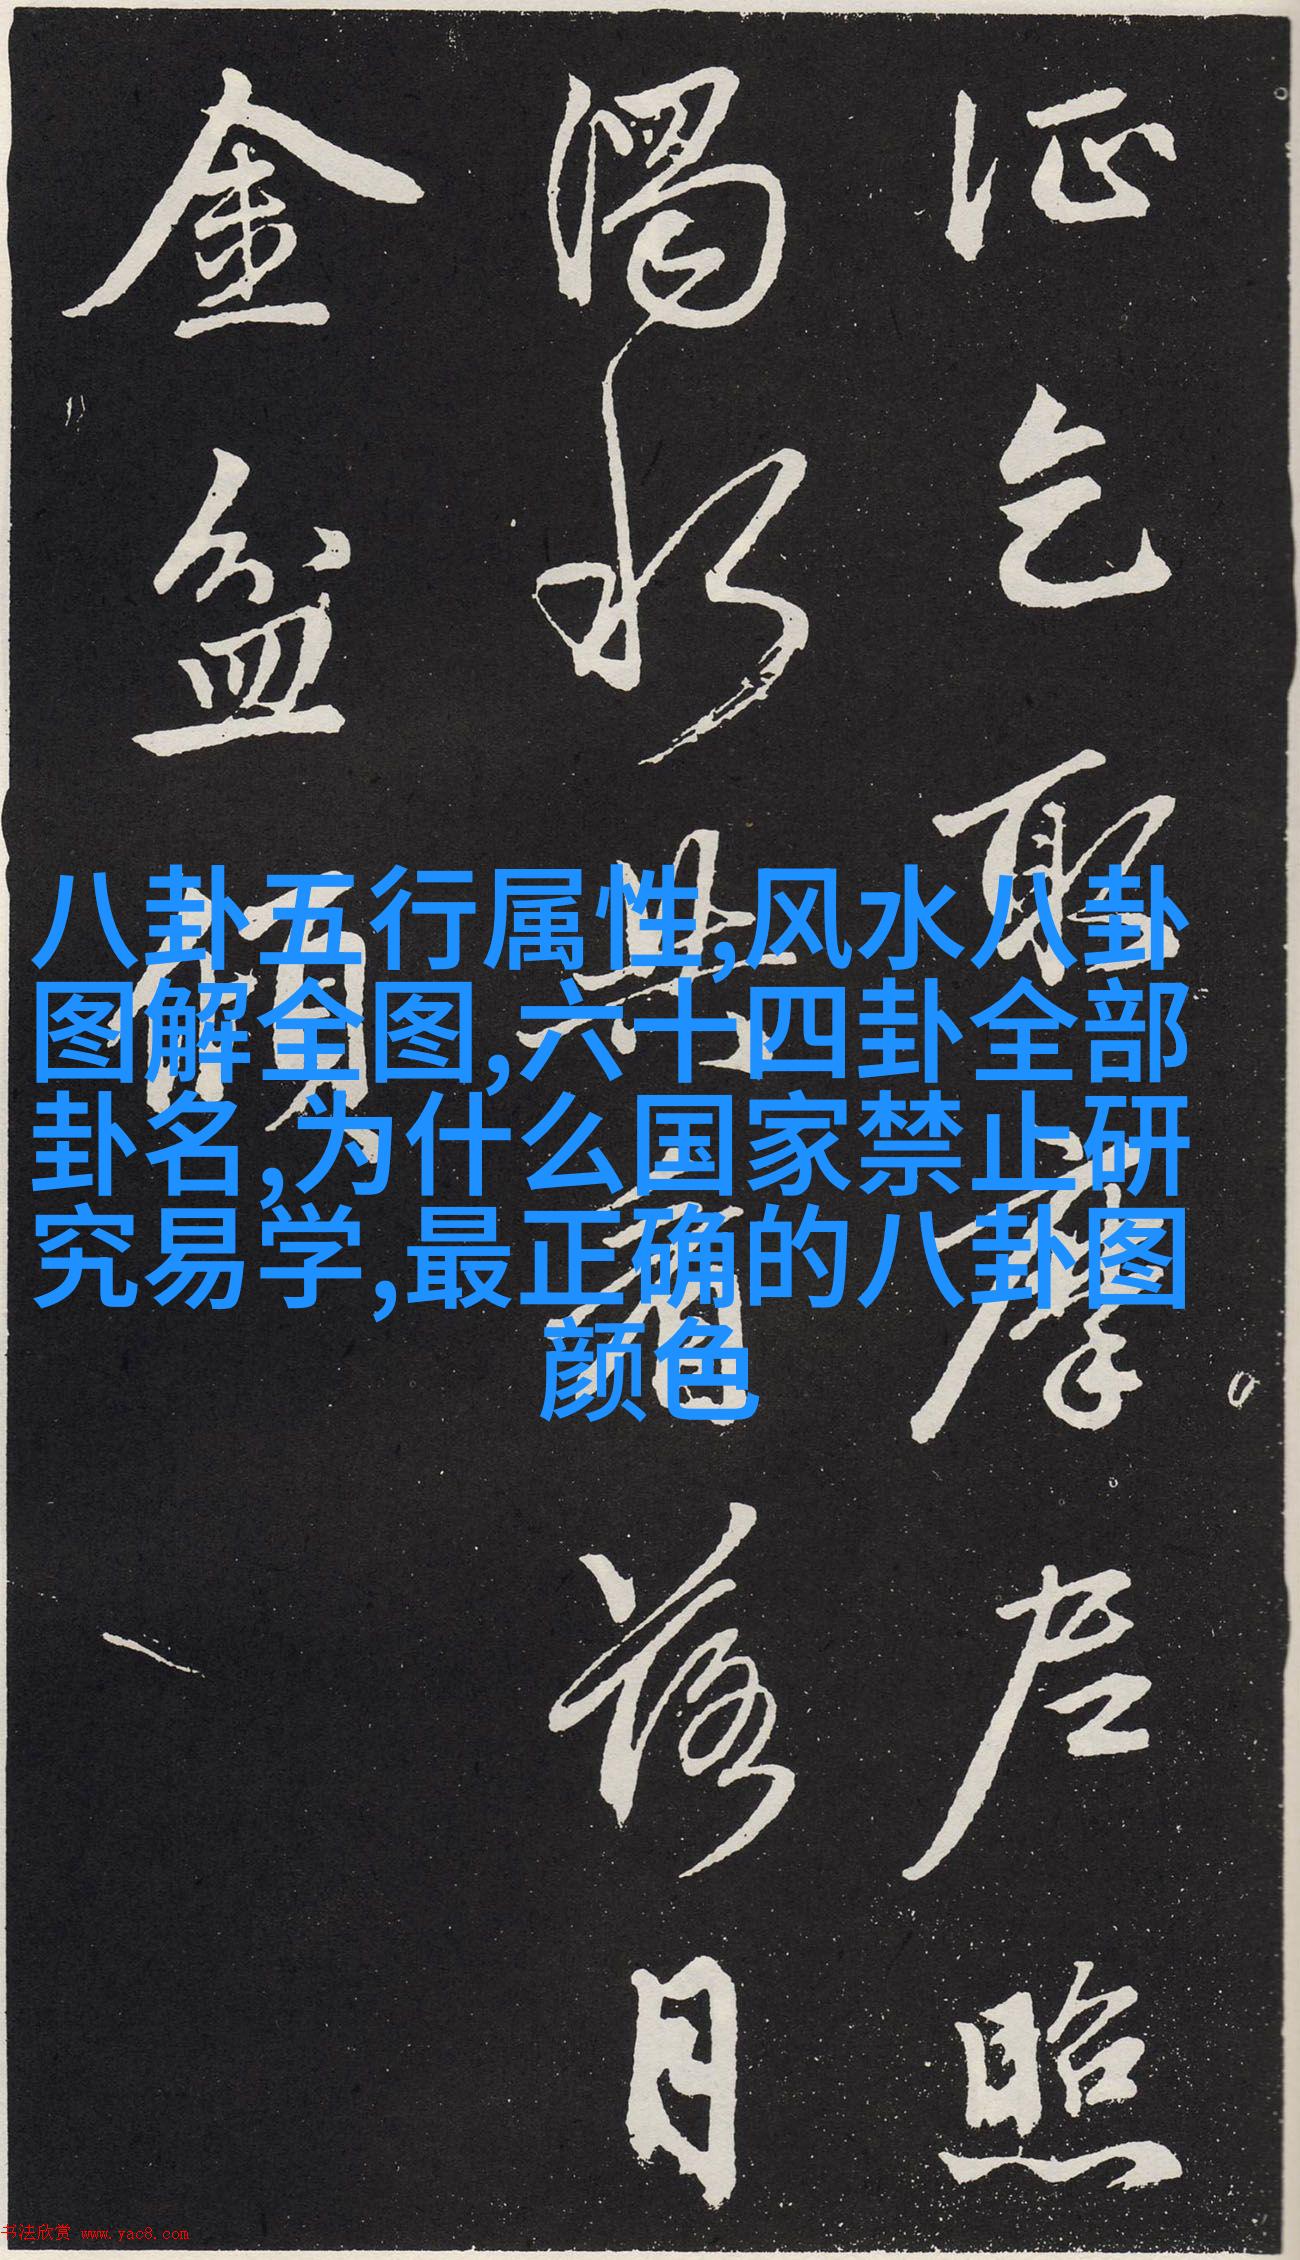 八卦五行属性,风水八卦
图解全图,六十四卦全部
卦名,为什么国家禁止研
究易学,最正确的八卦图
颜色
乞聊摩左照
濁水落月
金盆
书法欣赏 www.yac8.com